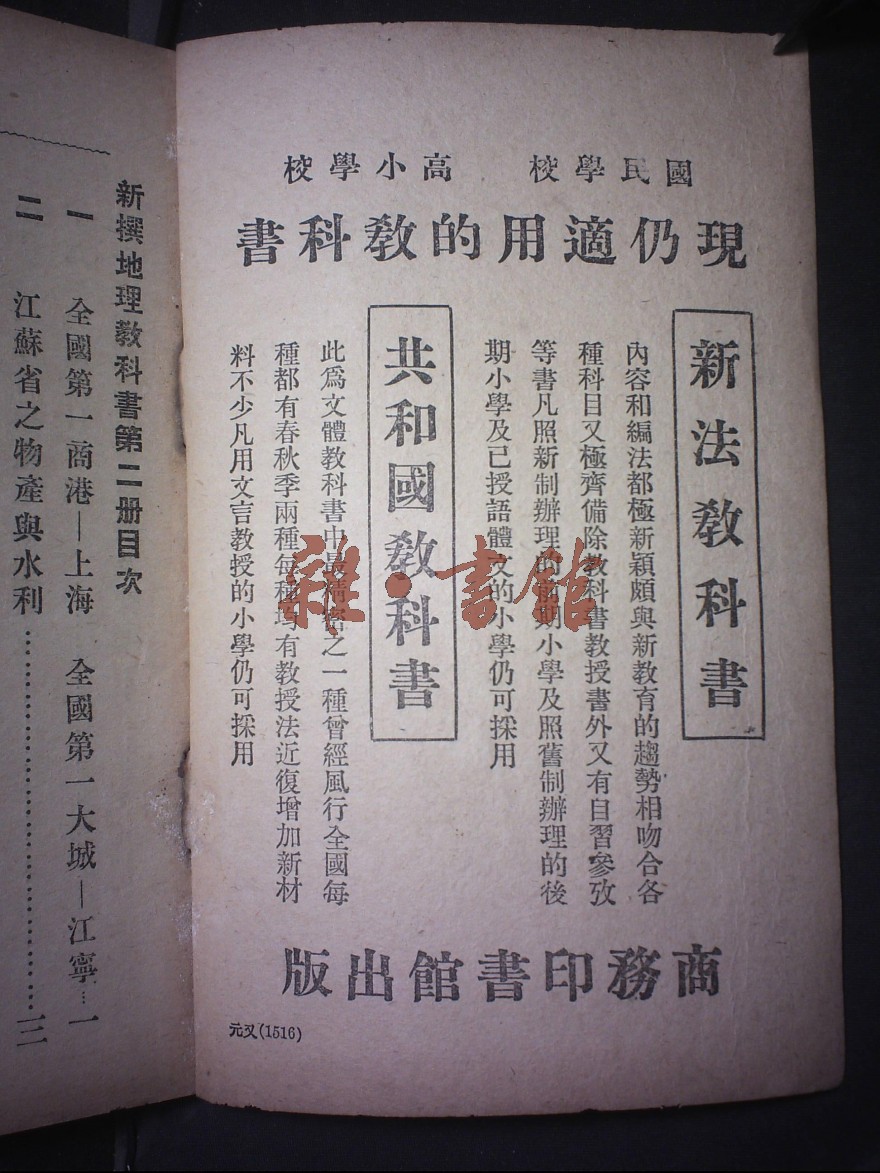 國民學校 高小學校
現仍適用的敎科書
新法敎科書
內容和編法都極新穎頗與新教育的趨勢相吻合各
種科目又極齊備除教科書教授書外又有自習參攷
等書凡照新制辦理的前期小學及照舊制辦理的後
期小學及已授語體文的小學仍可採用
共和國敎科書
此爲文體教科書中最精密之一種曾經風行全國每
種都有春秋季兩種每種均有教授法近復增加新材
料不少凡用文言教授的小學仍可採用
商務印書館出版
元又(1516)
新撰地理教科書第二册目次
一 全國第一商港—上海 全國第一大城—江寧…一
二 江蘇省之物產與水利……三
雜·書館